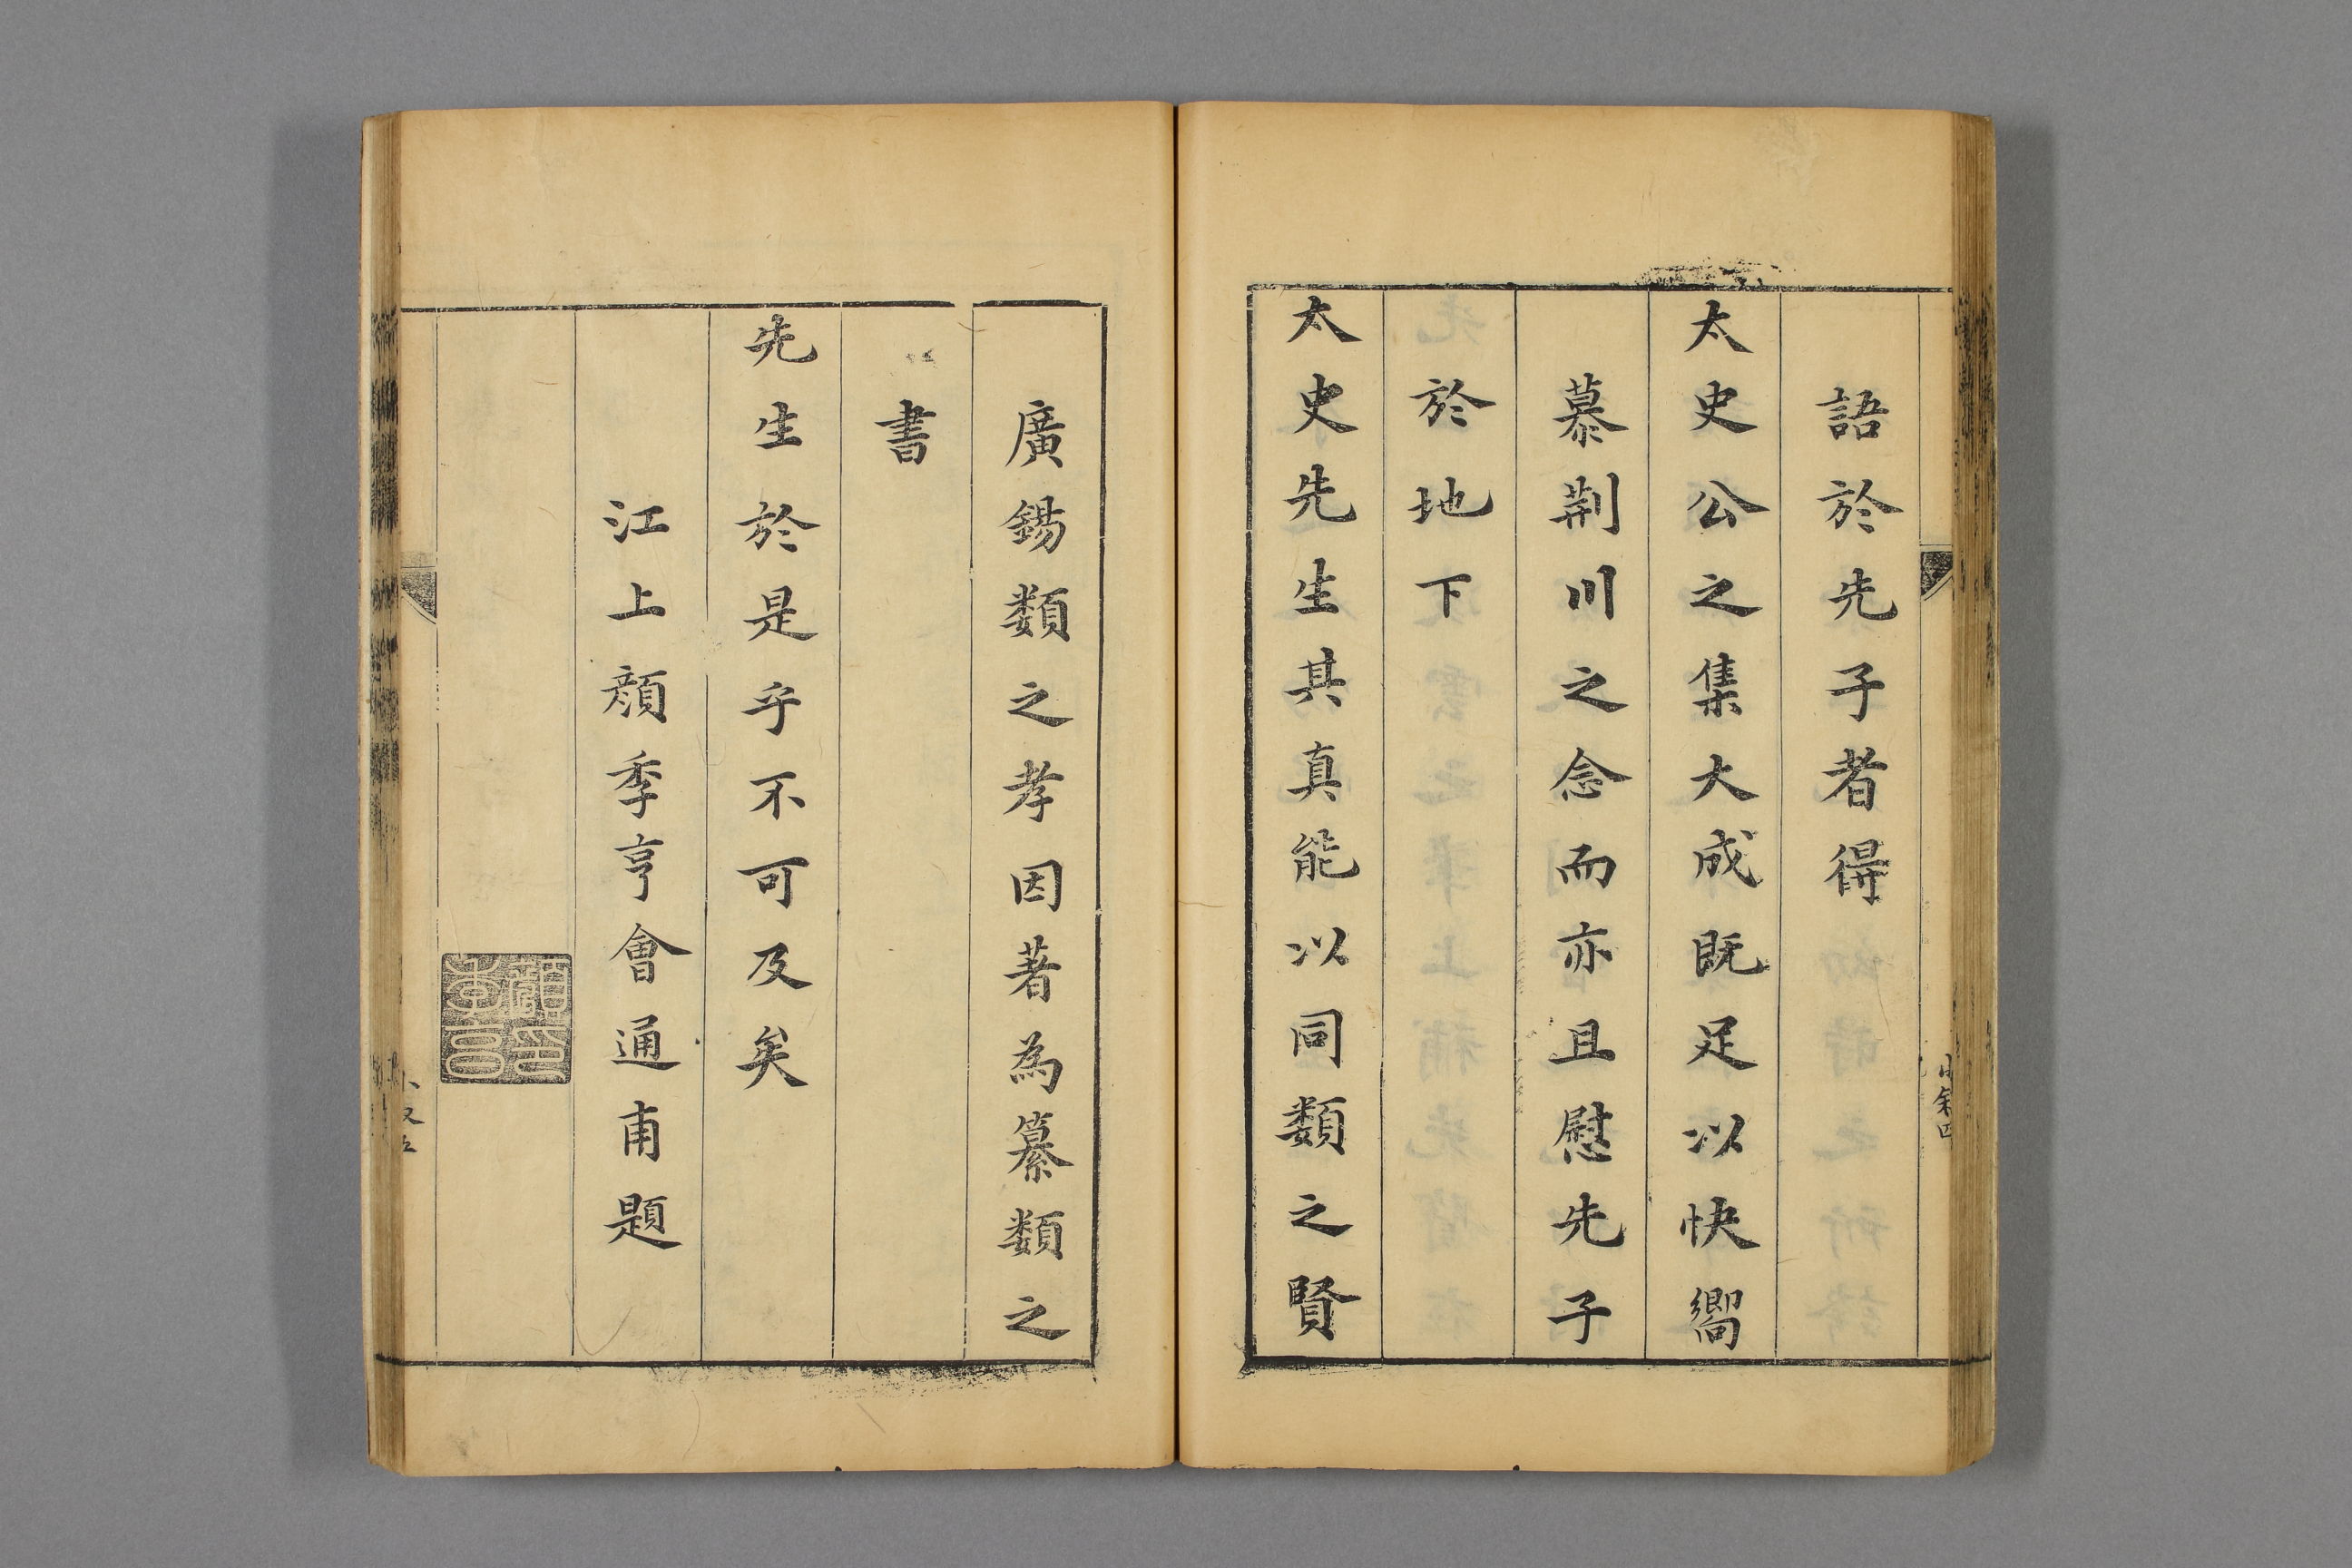 語於先子者得
太史公之集大成既足以快嚮
慕荆川之念而亦且慰先子
於地下
太史先生其真能以同類之賢
廣錫類之孝因著為纂類之
書
先生於是乎不可及矣
江上顏季亨會通甫題
小叙四